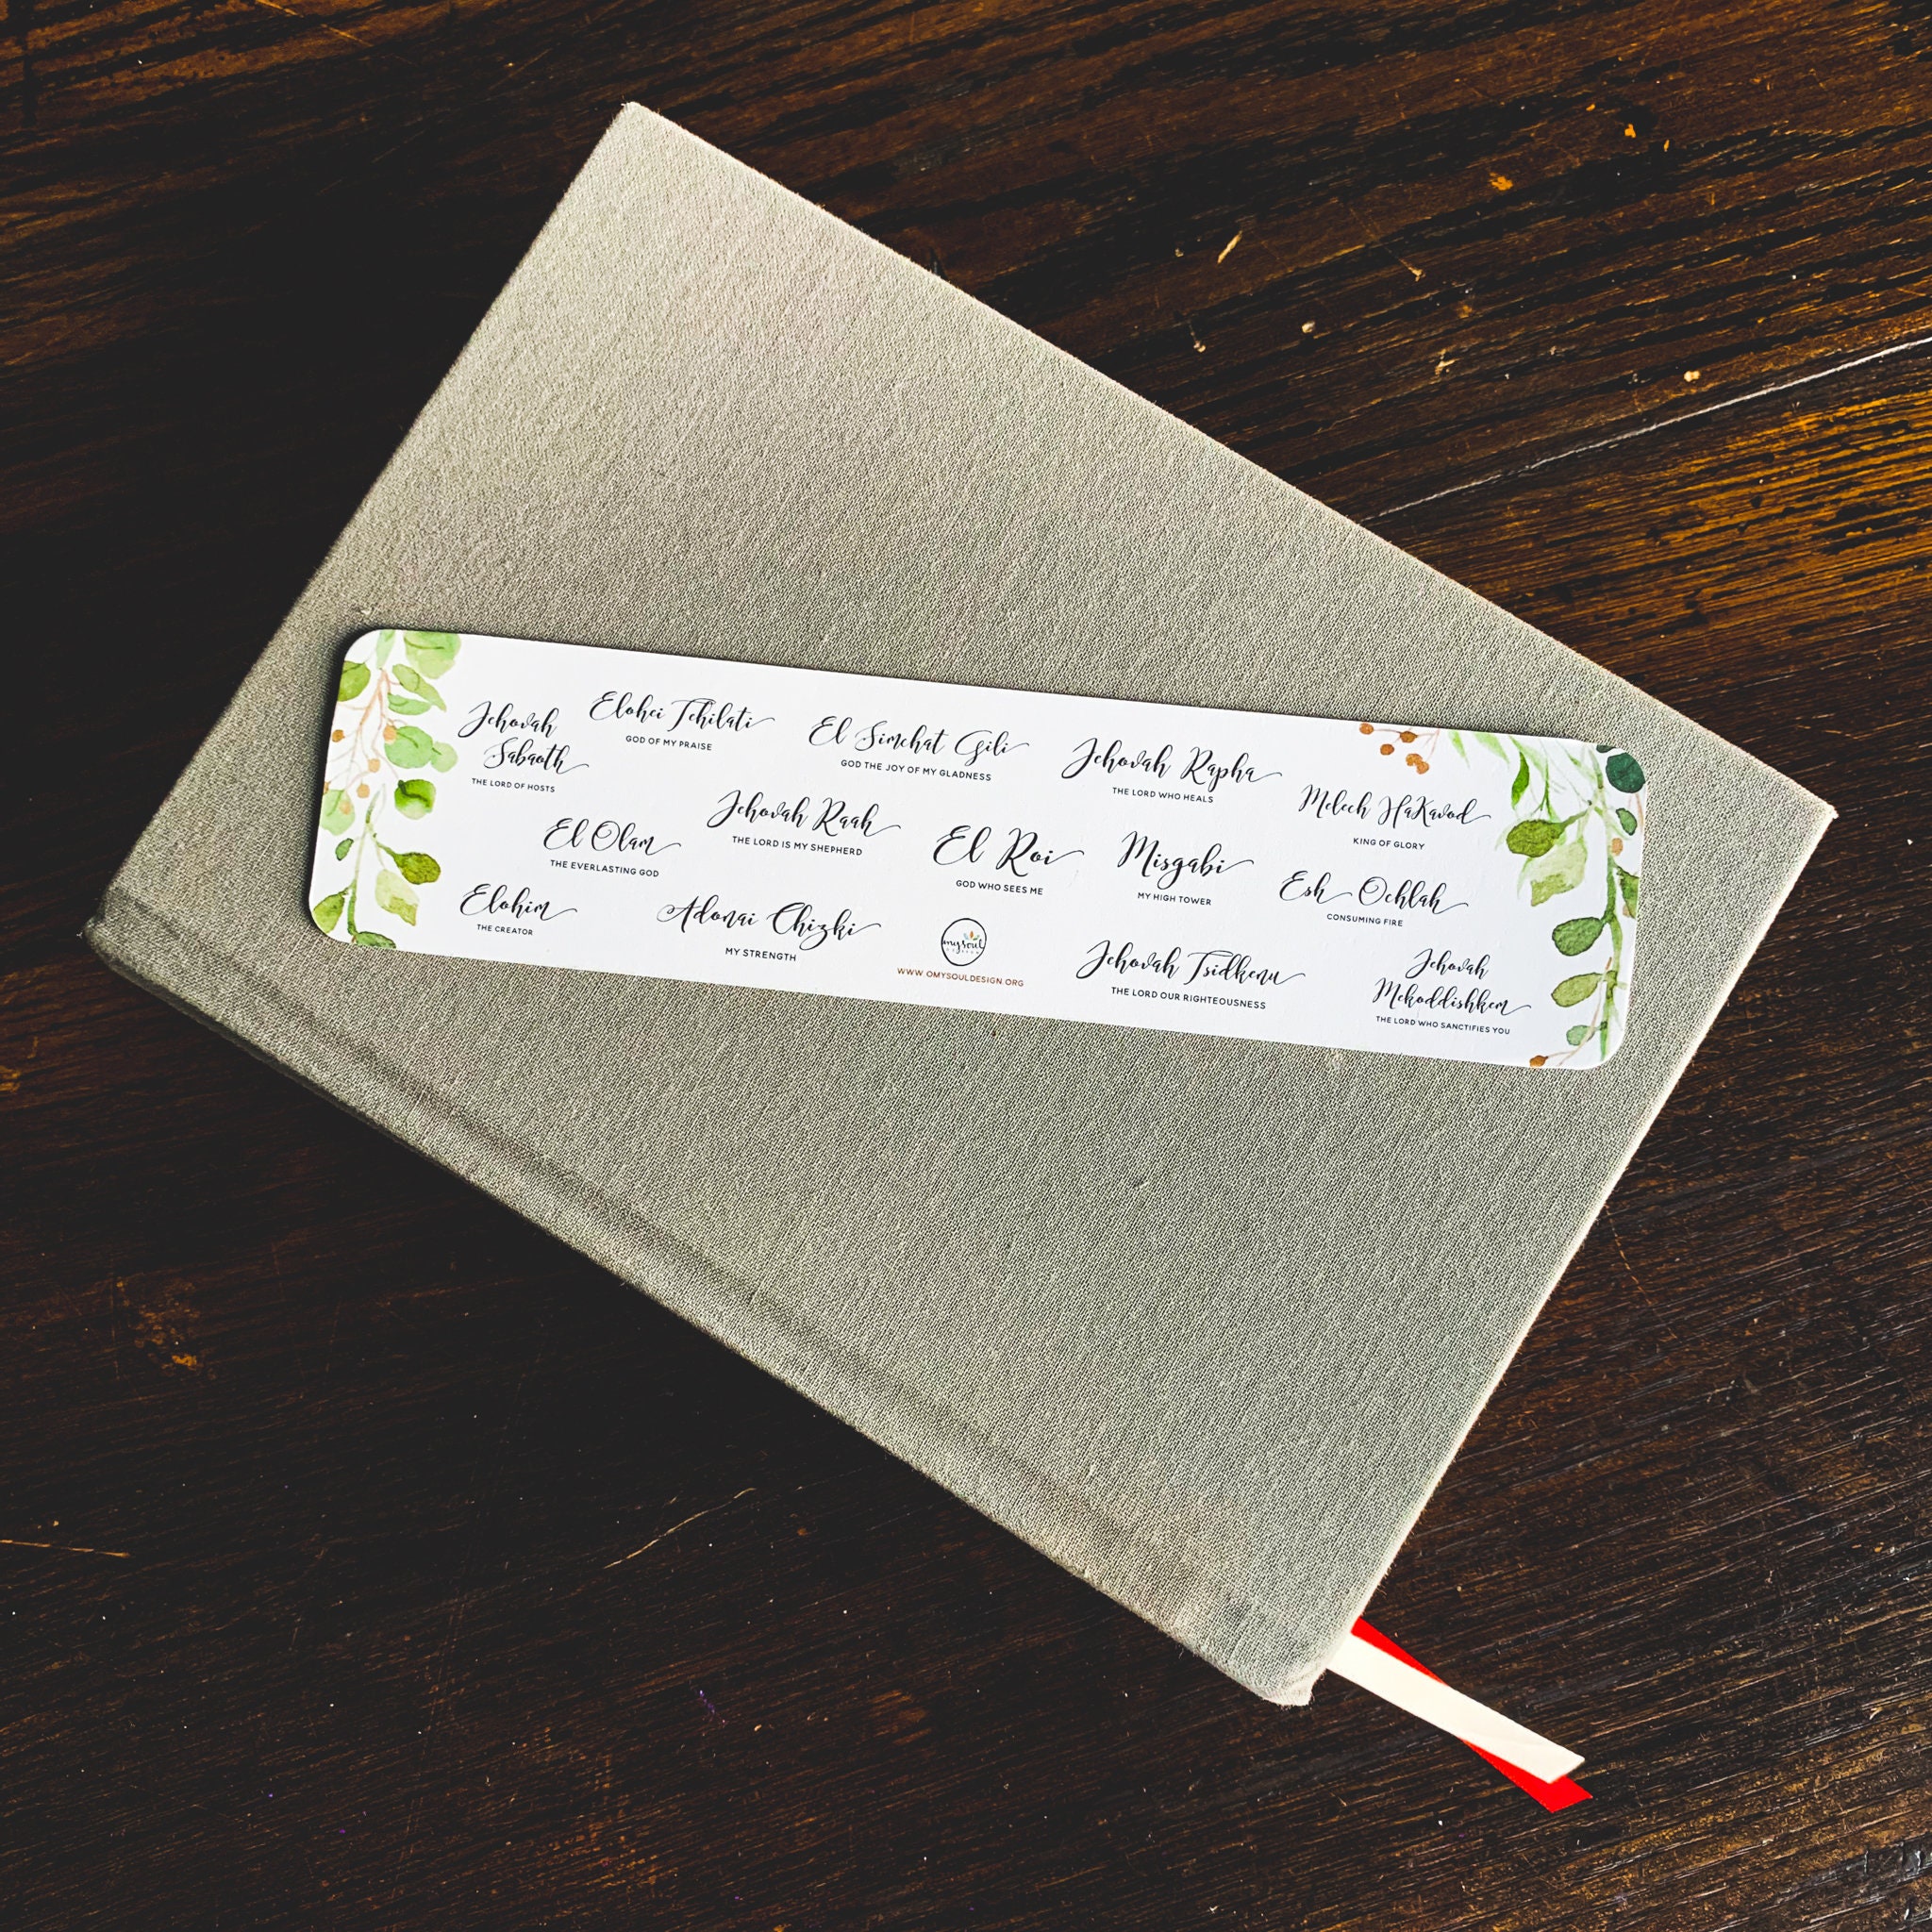 Jehovah
Sabaoth
THE LORD OF HOSTS
Elohei Tehilati
GOD OF MY PRAISE
El Simchat Gili
GOD THE JOY OF MY GLADNESS
Jehovah Rapha
THE LORD WHO HEALS
Melech HaKavod
KING OF GLORY
El Olam
THE EVERLASTING GOD
Jehovah Raah
THE LORD IS MY SHEPHERD
El Roi
GOD WHO SEES ME
Misgabi
MY HIGH TOWER
Esh Ochlah
CONSUMING FIRE
Elohim
THE CREATOR
Adonai Chizki
MY STRENGTH
my soul
WWW.OMYSOULDESIGN.ORG
Jehovah Tsidkenu
THE LORD OUR RIGHTEOUSNESS
Jehovah
Mekoddishkem
THE LORD WHO SANCTIFIES YOU